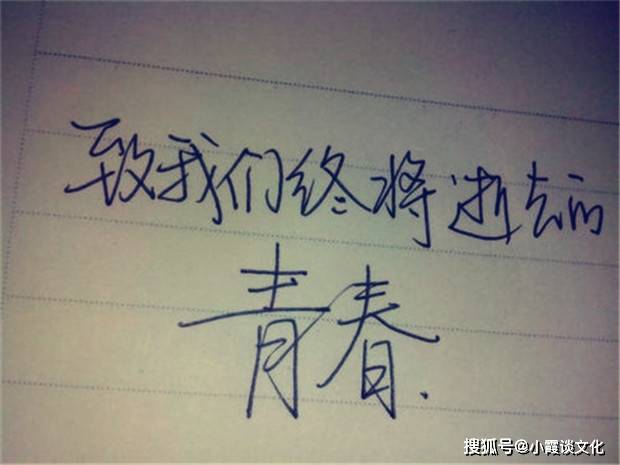 致我们终将逝去的
青春.
搜狐号@小霞谈文化